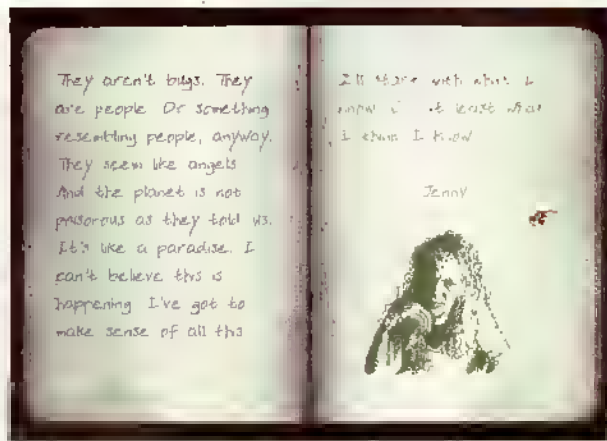 They aren't bugs. They
are people Or something
resembling people, anyway.
They seem like angels
And the planet is not
poisonous as they told us.
It's like a paradise. I
can't believe this is
happening I've got to
make sense of all this
I'll start with what I
know at least what
I think I know
Jenny